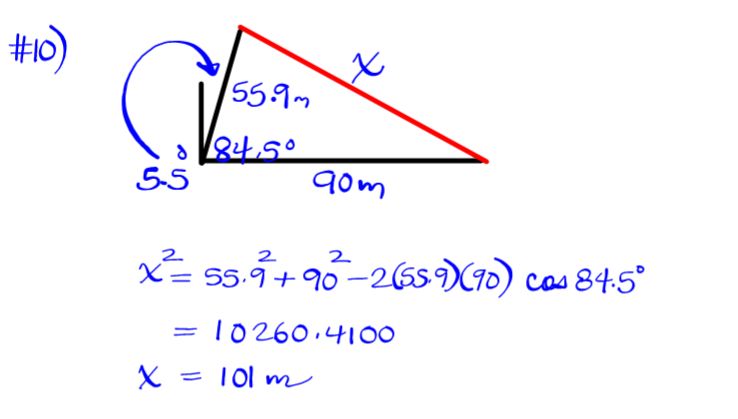 #10)
x
55.9m
84.5°
5.5°
90m
x² = 55.9² + 90² - 2(55.9)(90) cos 84.5°
= 10260.4100
x = 101 m